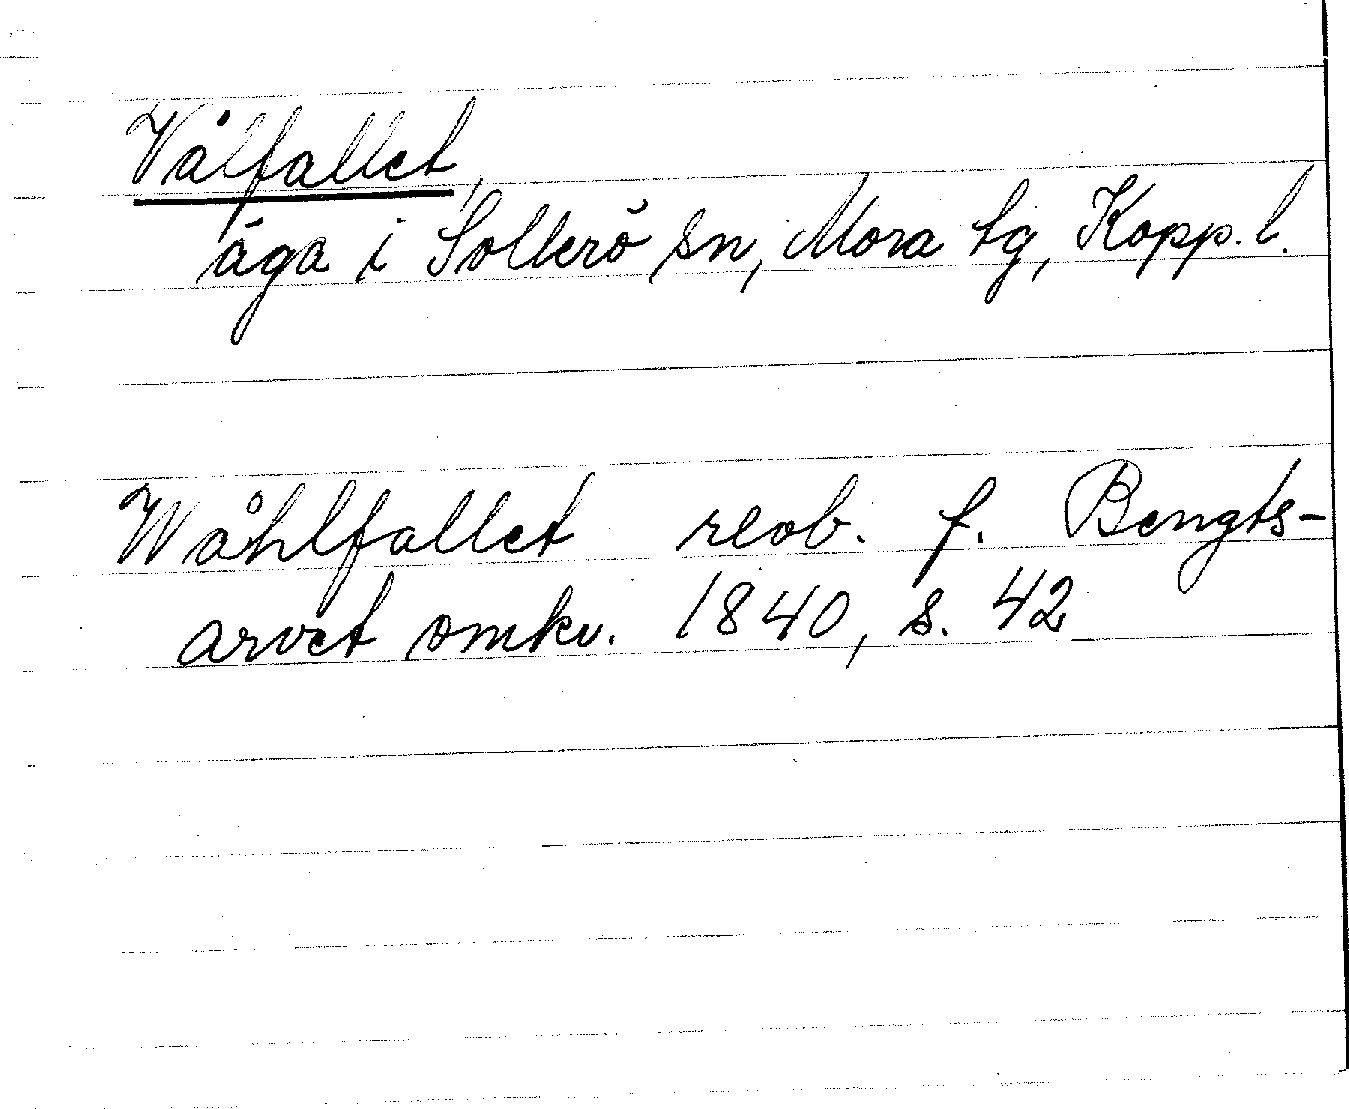 Vålfallet,
äga i Sollerö sn, Mora tg, Kopp. l.
Wåhlfallet reob. f. Bengts-
arvet omkr. 1840, s. 42